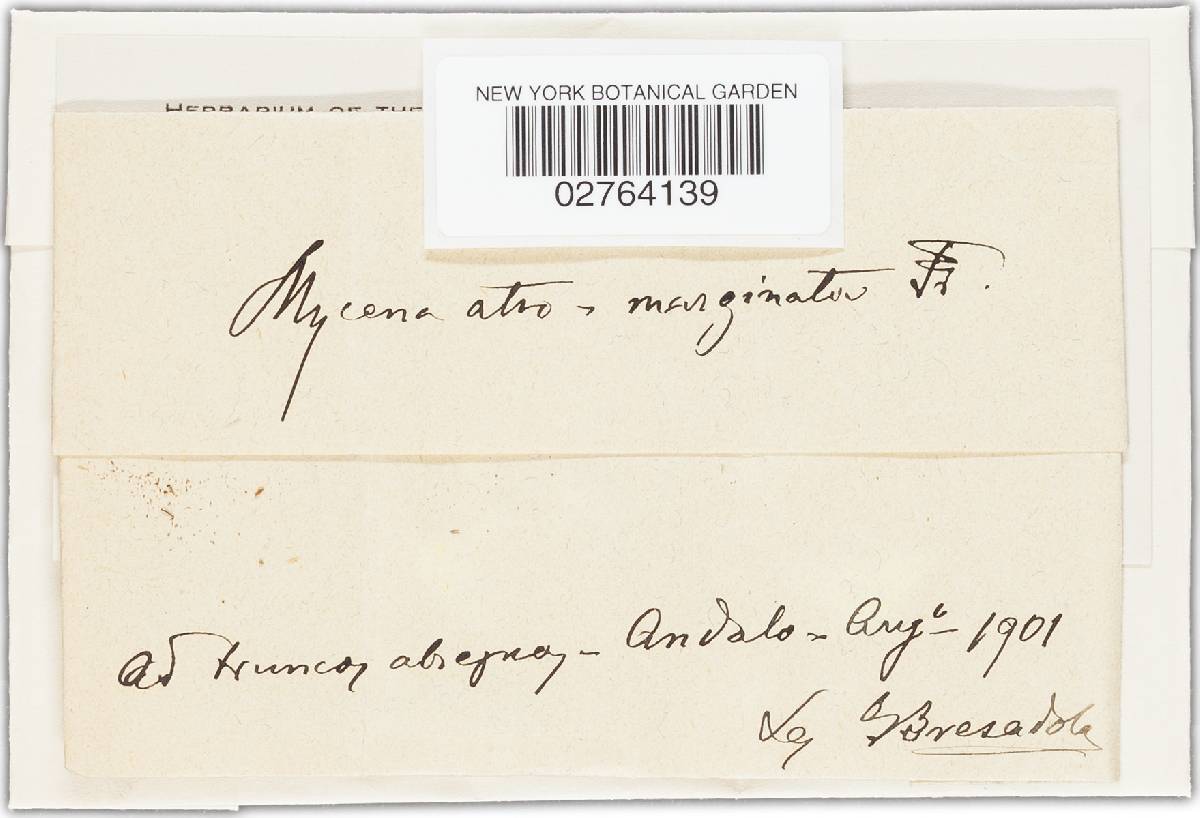 HERBARIUM OF THE
NEW YORK BOTANICAL GARDEN
02764139
Mycena atro-marginata Fr.
Ad truncos abiegnos - Andalo - Augo - 1901
Lg G Bresadola